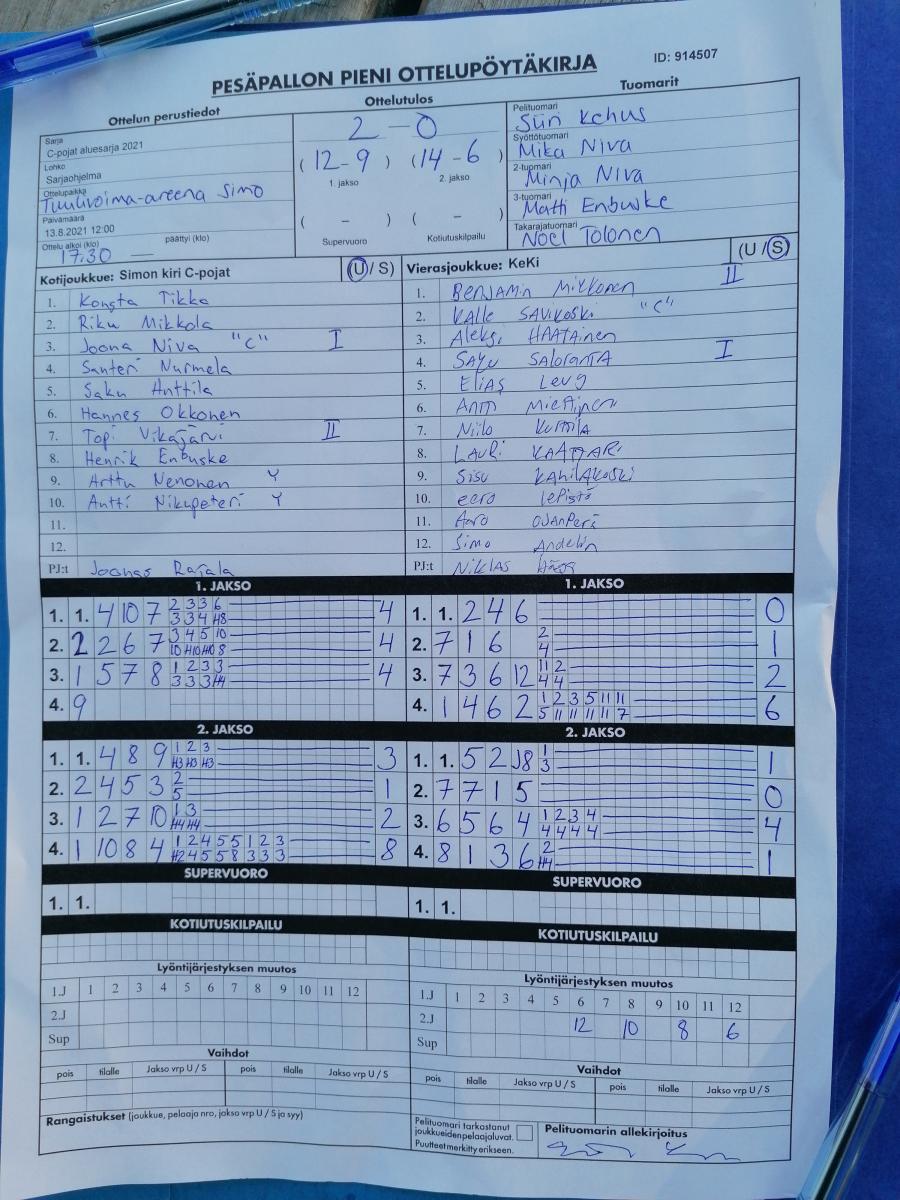 PESÄPALLON PIENI OTTELUPÖYTÄKIRJA
ID: 914507
Ottelun perustiedot
Sarja
C-pojat aluesarja 2021
Lohko
Sarjaohjelma
Ottelupaikka
Tuulivoima-areena Simo
Päivämäärä
13.8.2021 12:00
Ottelu alkoi (klo) päättyi (klo)
17.30 —
Ottelutulos
2 - 0
(12-9) (14-6)
1. jakso 2. jakso
( - ) ( - )
Supervuoro Kotiutuskilpailu
Tuomarit
Pelituomari
Siiri Kehus
Syöttötuomari
Mika Niva
2-tuomari
Minja Niva
3-tuomari
Matti Enbuske
Takarajatuomari
Noel Tolonen
Kotijoukkue: Simon kiri C-pojat (U/ S)
1. Konsta Tikka
2. Riku Mikkola
3. Joona Niva "C" I
4. Santeri Nurmela
5. Saku Anttila
6. Hannes Okkonen
7. Topi Vikajärvi II
8. Henrik Enbuske
9. Arttu Nenonen Y
10. Antti Nikupeteri Y
11.
12.
PJ:t Joonas Rajala
Vierasjoukkue: KeKi (U/ S)
1. Benjamin Mikkonen II
2. Kalle Savikoski "C"
3. Aleksi Haatainen
4. Saloranta I
5. Elias
6. Miettinen
7. Niilo
8. Lauri
9. Sisu Kahilakoski
10. eero lepistö
11. Aaro Ojanperä
12. Simo Andelin
PJ:t Niklas
1. JAKSO
1. 1. 4 10 7 2 3 3 6 4
3 3 4 H8
2. 2 2 6 7 3 4 5 10 4
10 H10 H10 8
3. 1 5 7 8 1 2 3 3 4
3 3 3 H4
4. 9
1. JAKSO
1. 1. 2 4 6 0
2. 7 1 6 2 1
4
3. 7 3 6 12 11 2 2
4 4
4. 1 4 6 2 1 2 3 5 11 11 6
5 11 11 11 11 7
2. JAKSO
1. 1. 4 8 9 1 2 3 3
H3 H3 H3
2. 2 4 5 3 2 1
5
3. 1 2 7 10 1 3 2
H4 H4
4. 1 10 8 4 1 2 4 5 5 1 2 3 8
H2 4 5 5 8 3 3 3
2. JAKSO
1. 1. 5 2 J8 1 1
3
2. 7 7 1 5 0
3. 6 5 6 4 1 2 3 4 4
4 4 4 4
4. 8 1 3 6 2 1
H4
SUPERVUORO
1. 1.
SUPERVUORO
1. 1.
KOTIUTUSKILPAILU
KOTIUTUSKILPAILU
Lyöntijärjestyksen muutos
1.J 1 2 3 4 5 6 7 8 9 10 11 12
2.J
Sup
Lyöntijärjestyksen muutos
1.J 1 2 3 4 5 6 7 8 9 10 11 12
2.J 12 10 8 6
Sup
Vaihdot
pois tilalle Jakso vrp U / S pois tilalle Jakso vrp U / S
Vaihdot
pois tilalle Jakso vrp U / S pois tilalle Jakso vrp U / S
Rangaistukset (joukkue, pelaaja nro, jakso vrp U / S ja syy)
Pelituomari tarkastanut
joukkueidenpelaajaluvat.
Puutteet merkitty erikseen.
Pelituomarin allekirjoitus